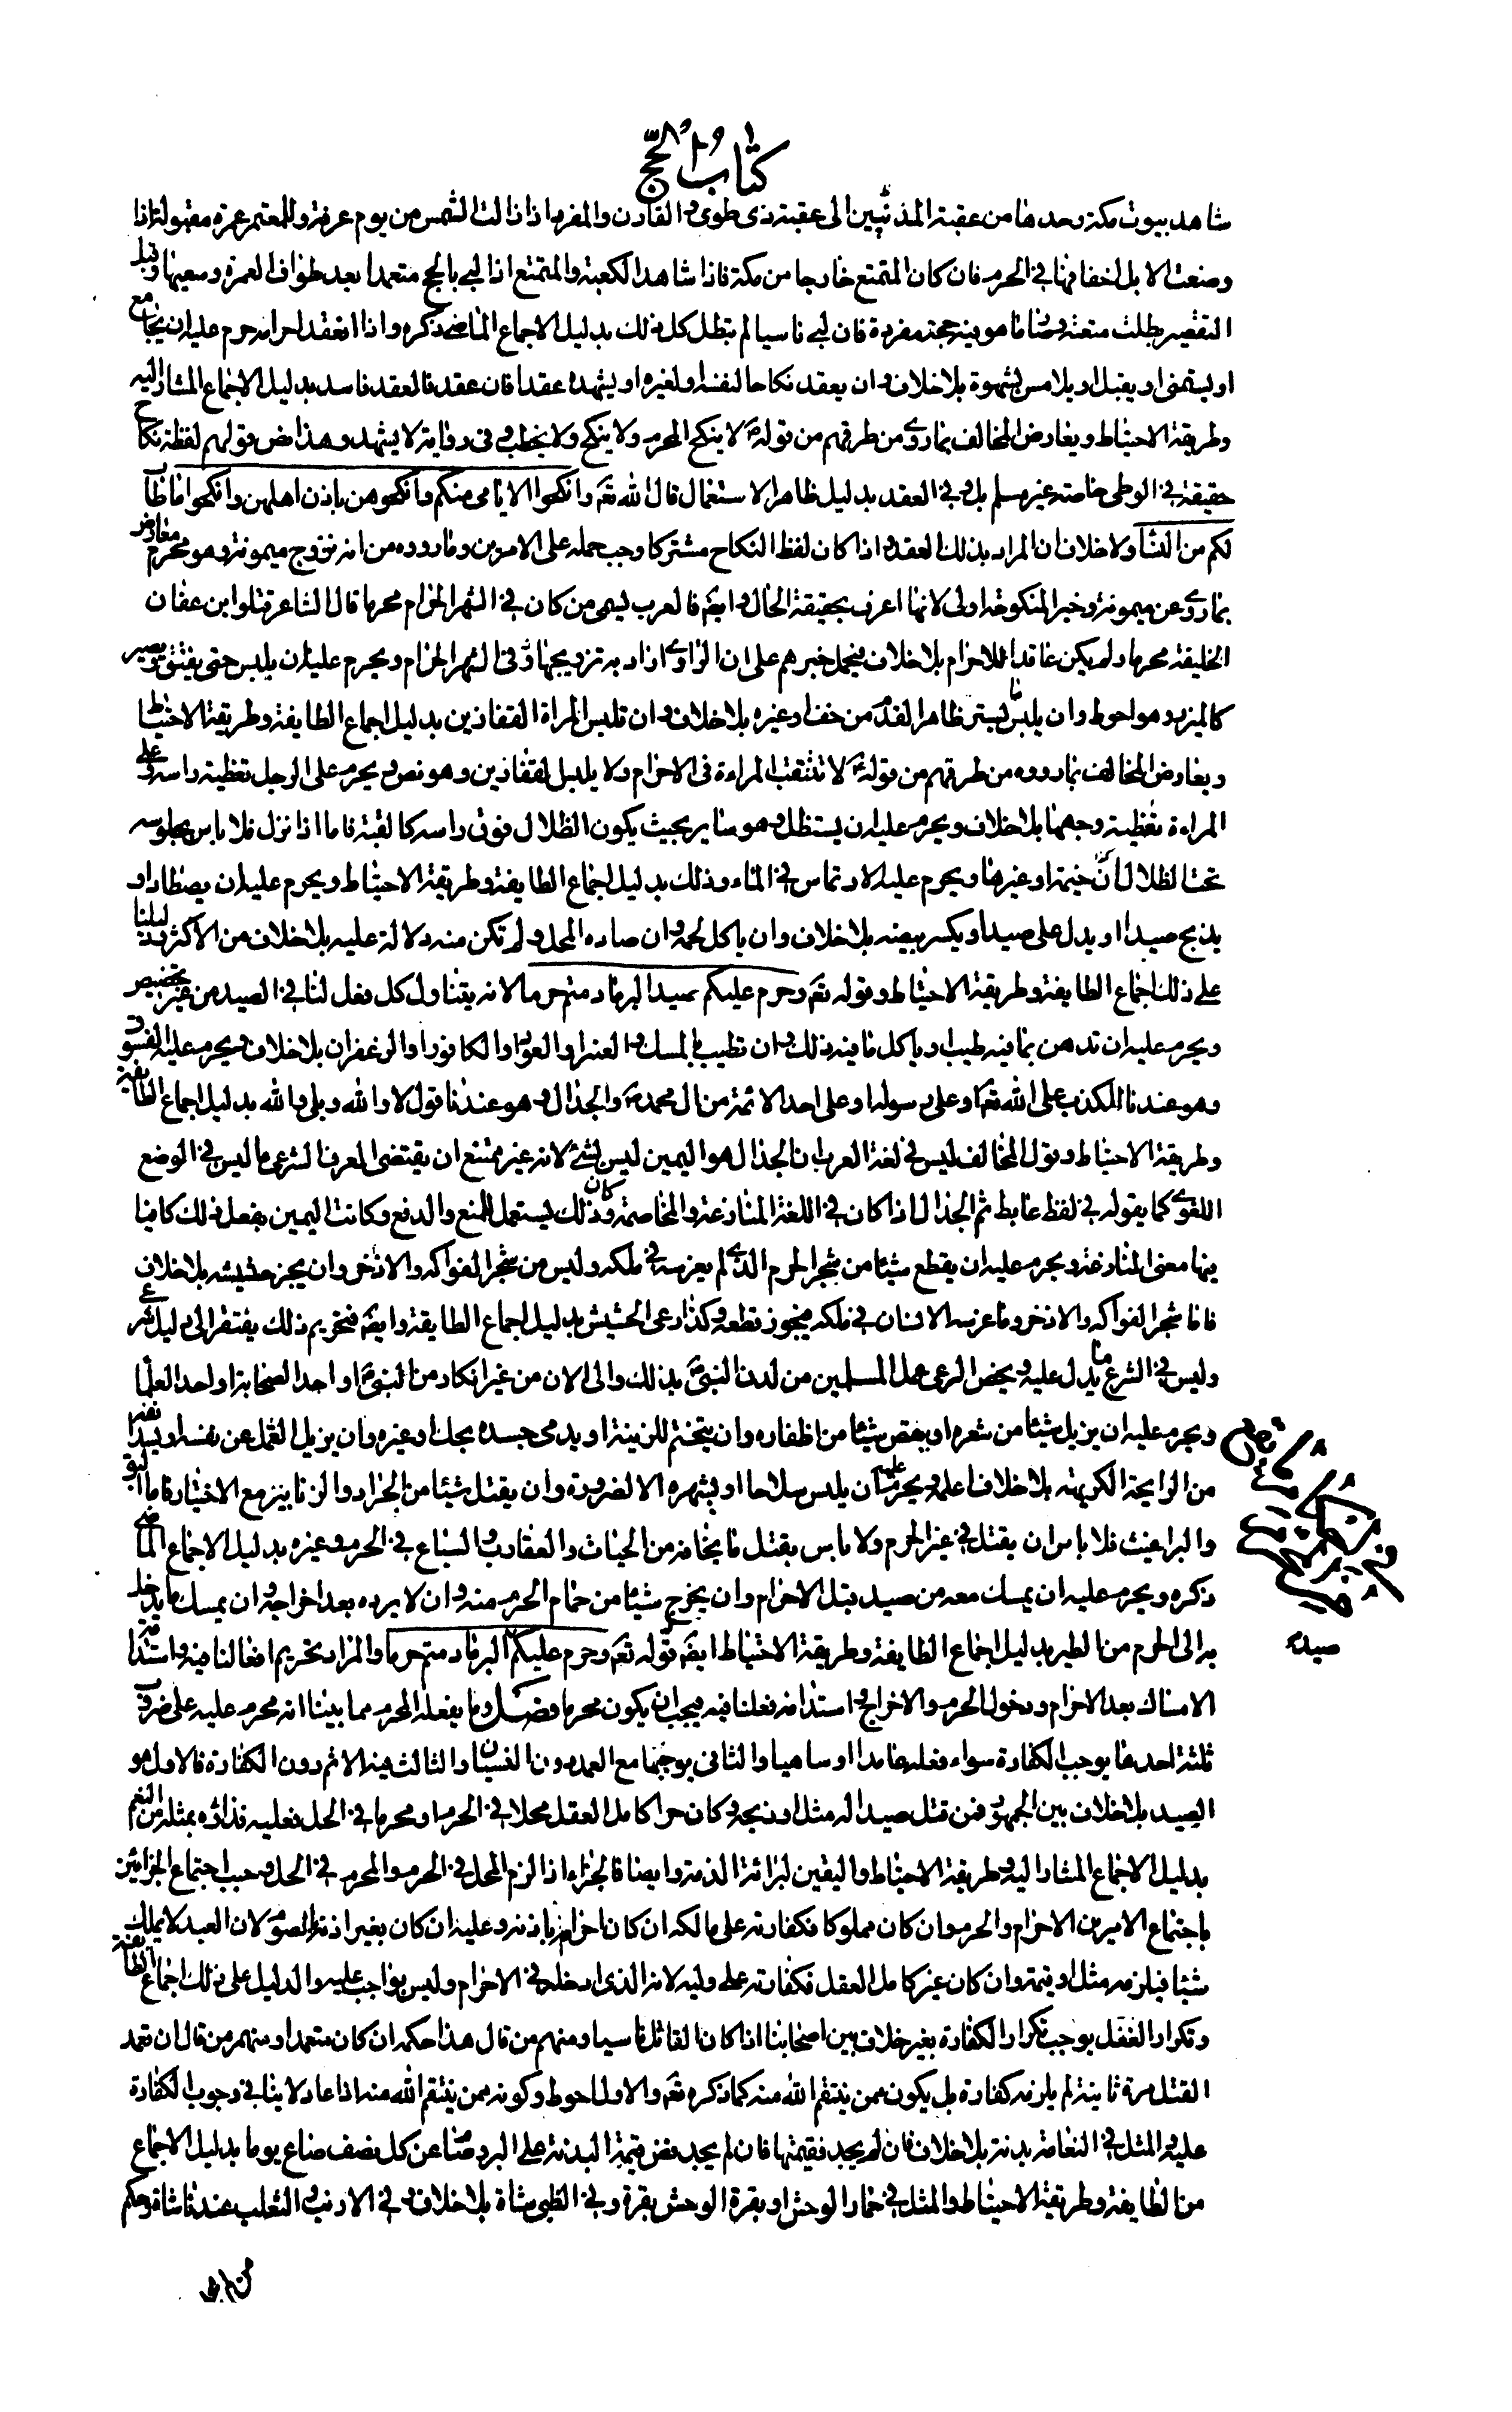 كتاب الحج
شاهد بيوت مكة وحدها من عقبة المدنيين الى عقبة ذى طوى و القارن والمفرد اذا زالت الشمس من يوم عرفة وللمعتمر عمرة مقبولة اذا
وضعت الابل اخفافها فى الحرم فان كان المتمتع خارجا من مكة فاذا شاهد الكعبة والمتمتع اذا لبى بالحج متعمدا بعد طواف العمرة وسعيها وقبل
التقصير بطلت متعته وصار ما هو فيه حجة مفردة فان لبى ناسيا لم يبطل كل ذلك بدليل الاجماع الماضى ذكره واذا انعقد احرامه حرم عليه ان يجامع
او يستمنى او يقبل او يلامس بشهوة بلا خلاف وان يعقد نكاحا لنفسه او لغيره او يشهد عقدا فان عقد فالعقد فاسد بدليل الاجماع المشار اليه
وطريقة الاحتياط ويعارض المخالف بما روى من طرقهم من قوله ص لا ينكح المحرم ولا ينكح ولا يخطب وفى رواية لا يشهد وهذا نص وقولهم لفظة نكاح
حقيقة فى الوطى خاصة غير مسلم بل وفى العقد بدليل ظاهر الاستعمال قال الله تعه وانكحوا الايامى منكم وانكحوهن باذن اهلهن وانكحوا ما طاب
لكم من النساء ولا خلاف ان المراد بذلك العقد واذا كان لفظ النكاح مشتركا وجب حمله على الامرين وما رووه من انه تزوج ميمونة وهو محرم معارض
بما روى عن ميمونة وخبر المنكوحة اولى لانها اعرف بحقيقة الحال وايضه فالعرب يسمى من كان فى الشهر الحرام محرما قال الشاعر قتلوا ابن عفان
الخليفة محرما ولم يكن عاقدا للاحرام بلا خلاف فيحمل خبرهم على ان الراوى اراد به تزويجها فى الشهر الحرام ويحرم عليه ان يلبس حتى يفتق ويصير
كالميزر وهو احوط وان يلبس ما يستر ظاهر القدم من خف او غيره بلا خلاف وان تلبس المراة القفازين بدليل اجماع الطايفة وطريقة الاحتياط
ويعارض المخالف بما رووه من طرقهم من قوله ص لا تتنقب المراءة فى الاحرام ولا يلبس القفازين وهو نص و يحرم على الرجل تغطية راسه وعلى
المراءة تغطية وجهها بلا خلاف ويحرم عليه ان يستظل وهو ساير بحيث يكون الظلال فوق راسه كالقبة فاما اذا نزل فلا باس بجلوسه
تحت الظلال خيمة او غيرها ويحرم عليه الارتماس فى الماء وذلك بدليل اجماع الطايفة وطريقة الاحتياط ويحرم عليه ان يصطاد او
يذبح صيدا او يدل على صيد او يكسر بيضه بلا خلاف وان ياكل لحمه وان صاده المحل ولم تكن منه دلالة عليه بلا خلاف من الاكثر دليلنا
على ذلك اجماع الطايفة وطريقة الاحتياط وقوله تعه وحرم عليكم صيد البر ما دمتم حرما لانه يتناول كل فعل لنا فى الصيد من غير تخصيص
ويحرم عليه ان تدهن بما فيه طيب او ياكل ما فيه ذلك وان تطيب بالمسك و العنبر او العود او الكافور او الزعفران بلا خلاف ويحرم عليه الفسوق
وهو عندنا الكذب على الله تعه او على رسوله او على احد الائمة من ال محمد ص والجدال وهو عندنا قول لا والله وبلى والله بدليل اجماع الطايفة
وطريقة الاحتياط وقول المخالف ليس فى لغة العرب ان الجدال هو اليمين ليس بشئ لانه غير ممتنع ان يقتضى العرف الشرعى ما ليس فى الوضع
اللغوى كما يقوله فى لفظ غايط ثم الجدال اذا كان فى اللغة المنازعة والمخاصمة وكان ذلك يستعمل للمنع والدفع وكانت اليمين يفعل ذلك كان فيها
فيها معنى المنازعة ويحرم عليه ان يقطع شيئا من شجر الحرم الذى لم يغرسه فى ملكه وليس من شجر الفواكه والاذخر وان يجز حشيشه بلا خلاف
فاما شجر الفواكه والاذخر وما غرسه الانسان فى ملكه فيجوز قطعه وكذا رعى الحشيش بدليل اجماع الطايفة وايضه فتحريم ذلك يفتقر الى دليل شرعى
وليس فى الشرع ما يدل عليه ويخص الرعى عمل المسلمين من لدن النبى ص بذلك والى الان من غير انكار من النبى ص او احد الصحابة او احد العلما
ويحرم عليه ان يزيل شيئا من شعره او يقص شيئا من اظفاره وان يتختم للزينة او يدمى جسده بحك او غيره وان يزيل القمل عن نفسه او يسد انفه
من الرايحة الكريهة بلا خلاف اعلمه ويحرم عليه ان يلبس سلاحا او يشهره الا لضرورة وان يقتل شيئا من الجراد والزنابير مع الاختيار فاما البق
والبراغيث فلا باس ان يقتل فى غير الحرم ولا باس بقتل ما يخافه من الحيات والعقارب والسباع فى الحرم وغيره بدليل الاجماع الماضى
ذكره ويحرم عليه ان يمسك معه من صيد قبل الاحرام وان يخرج شيئا من حمام الحرم منه وان لا يرده بعد اخراجه وان يمسك ما يدخل
به الى الحرم من الطير بدليل اجماع الطايفة وطريقة الاحتياط ايضه قوله تعه وحرم عليكم البر ما دمتم حرما والمراد تحريم افعالنا فيه واستدامة
صيد
الامساك بعد الاحرام ودخول الحرم والاخراج استدامة فعلنا فيه فيجب ان يكون محرما فصل وما يفعله المحرم مما بينا انه محرم عليه على ضروب
ثلثة احدها يوجب الكفارة سواء فعله عامدا او ساهيا والثانى يوجبها مع العمد دون النسيان والثالث فيه الاثم دون الكفارة فالاول هو
الصيد بلا خلاف بين الجمهور فمن قتل صيدا له مثل او ذبحه وكان حرا كامل العقل محلا فى الحرم او محرما فى الحل فعليه فداؤه بمثله من النعم
بدليل الاجماع المشار اليه وطريقة الاحتياط واليقين لبرائة الذمة وايضا فالجزاء اذا لزم المحل فى الحرم والمحرم فى الحل وجب اجتماع الجزائين
باجتماع الامرين الاحرام والحرم وان كان مملوكا فكفارته على مالكه ان كان احرامه باذنه وعليه ان كان بغير اذنه الصوم لان العبد لا يملك
شيئا فيلزمه مثل او قيمته وان كان غير كامل العقل فكفارته على وليه لانه الذى ادخله فى الاحرام وليس بواجب عليه والدليل على ذلك اجماع الطايفة
وتكرار الفعل يوجب تكرار الكفارة بغير خلاف بين اصحابنا اذا كان القاتل ناسيا ومنهم من قال هذا حكمه ان كان متعمدا ومنهم من قال ان تعمد
القتل مرة ثانية لم يلزمه كفارة بل يكون ممن ينتقم الله منه كما ذكره تعه والاول احوط وكونه ممن ينتقم الله منه اذا عاد لا ينافى وجوب الكفارة
عليه والمثل فى النعامة بدنة بلا خلاف فان لم يجد فقيمتها فان لم يجد فض قيمة البدنة على البر وصام عن كل نصف صاع يوما بدليل الاجماع
من الطايفة وطريقة الاحتياط والمثل فى حمار الوحش او بقرة الوحش بقرة وفى الظبى شاة بلا خلاف وفى الارنب والثعلب عندنا شاة وحكم